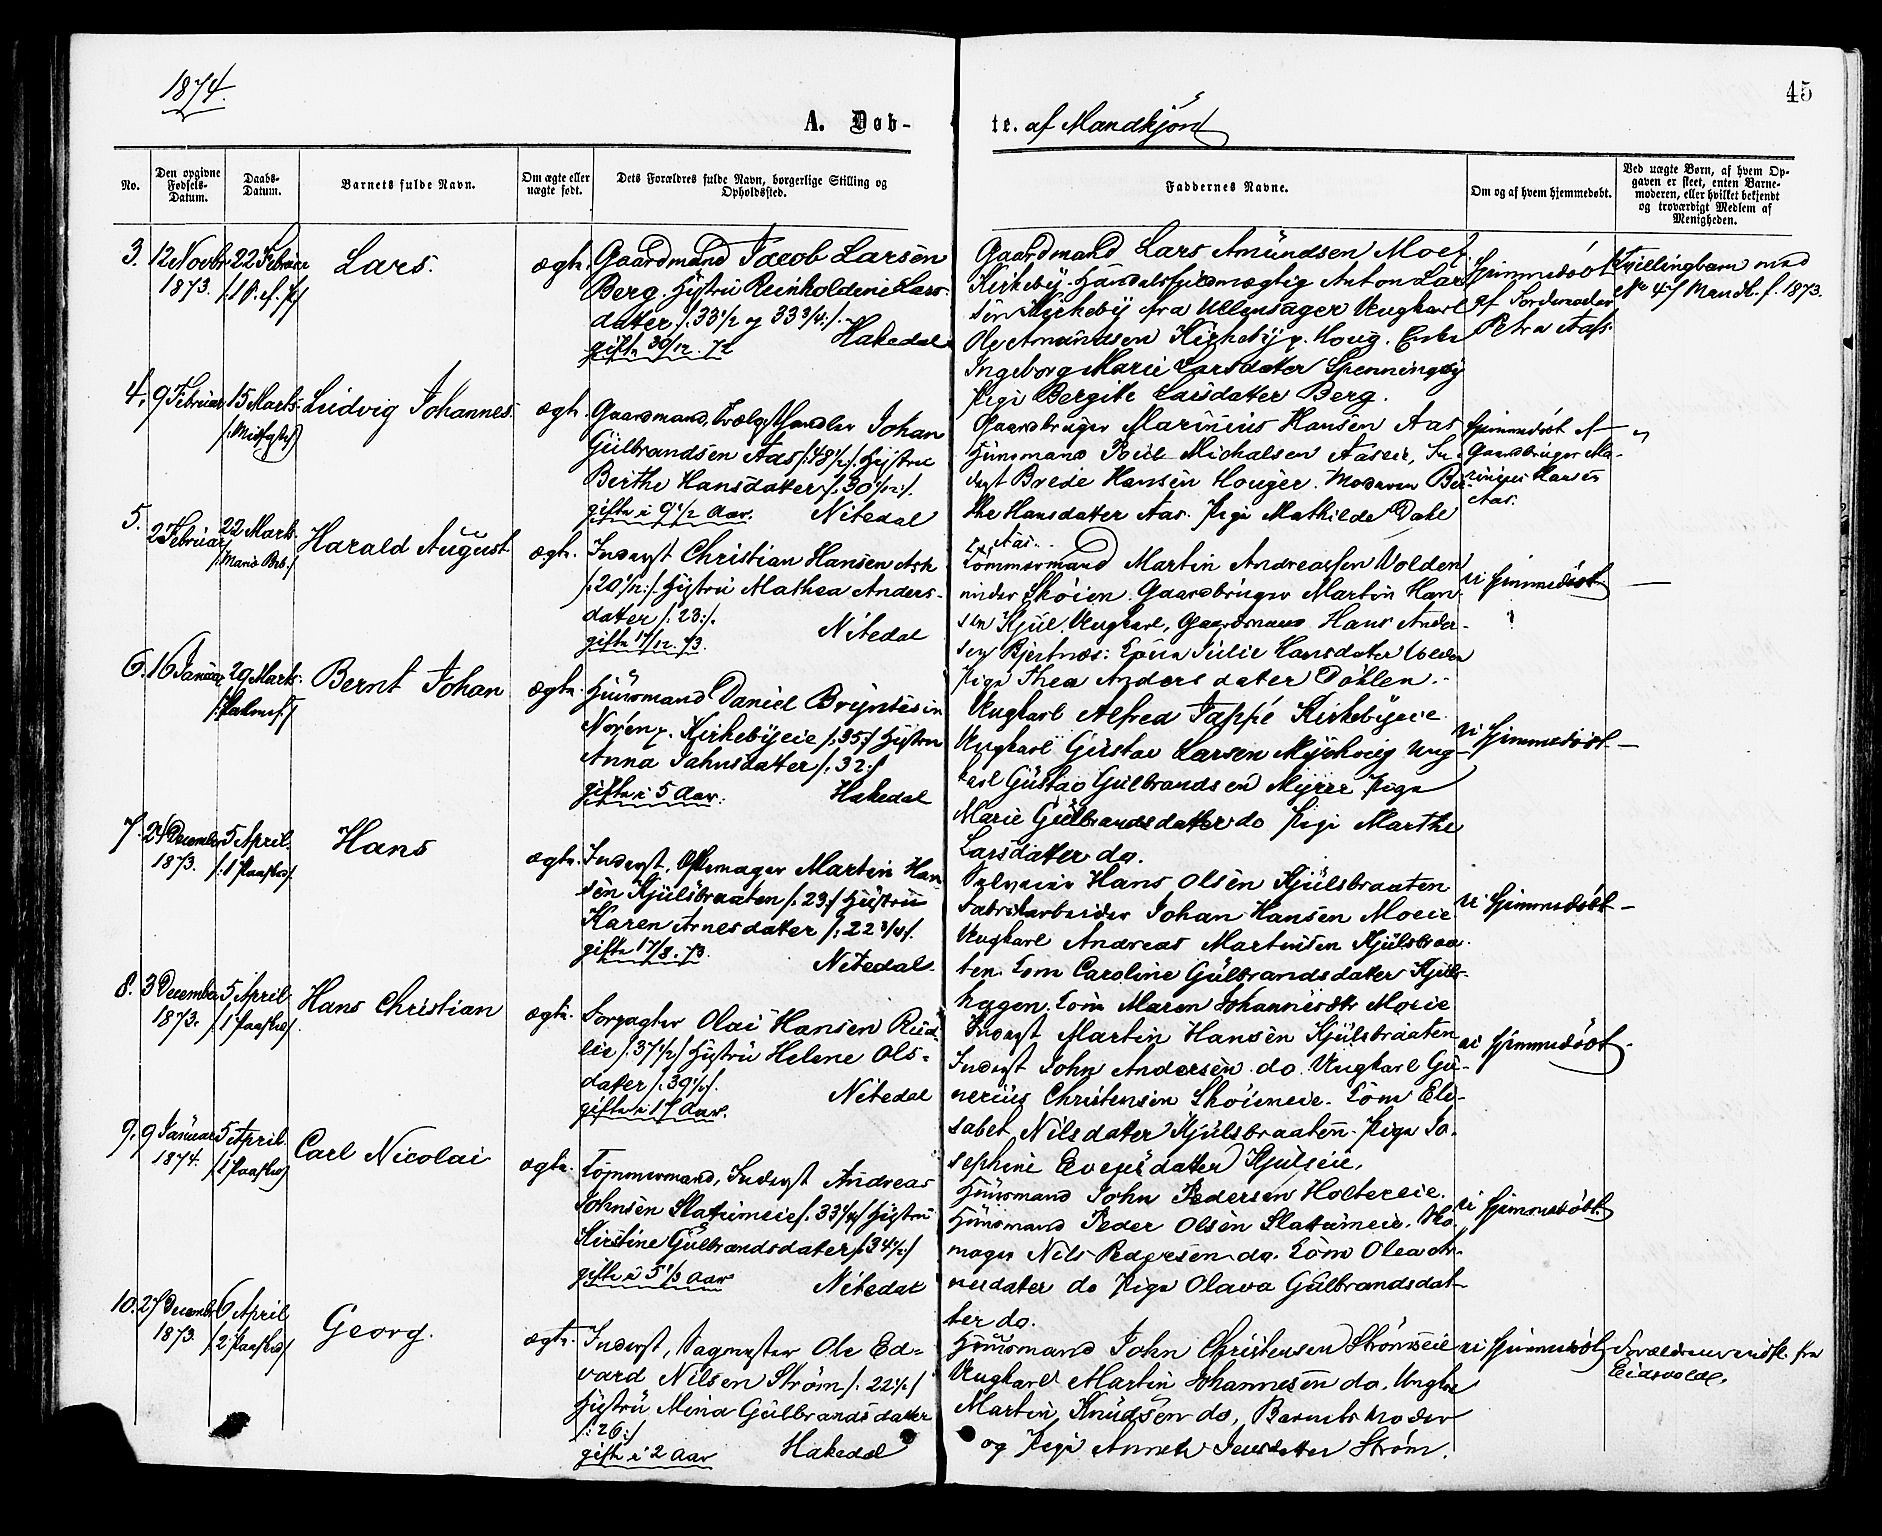 1874.
45
A. Døb-
te. af Mandkjøn
No.
Den opgivne Fødsels-Datum.
Daabs-Datum.
Barnets fulde Navn.
Om ægte eller uægte født.
Dets Forældres fulde Navn, borgerlige Stilling og Opholdssted.
Faddernes Navne.
Om og af hvem hjemmedøbt.
Ved uægte Børn, af hvem Opgaven er skeet, enten Barnemoderen, eller hvilket bekjendt og troværdigt Medlem af Menigheden.
3. 12 Novbr 1873. 22 Februar
Lars.
ægte.
Gaardmand Jacob Larsen
Berg. Hustru Reinholdine Lars-
datter /: 33 1/2 og 33 3/4 :/.
gifte 30/12. 72 Hakedal
Gaardmand Lars Amundsen Moe,
Kirkeby. Handelsfuldmægtig Anton Lar
sen Kirkeby fra Ullensager Ungkarl
Ole Amundsen Kirkeby p. Houg. Enke
Ingeborg Marie Larsdatter Spenningsby
Pige Bergite Larsdatter Berg.
Hjemmedøbt
af Jordmoder
Petra Aas.
Tvillingbarn med
No 47 Mandk. f. 1873.
4. 9 Februar 15 Marts /: Midfaste :/
Ludvig Johannes.
ægte.
Gaardmand, Handler Johan
Gulbrandsen Aas /: 48 1/2 :/ Hustru
Birthe Hansdatter /: 30 1/12 :/.
gifte i 9 1/2 Aar. Nitedal
Gaardbruger Marinius Hansen Aas
Huusmand Michalsen Aaseie, In-
derst Brede Hansen Houger. Moderen Bir-
the Hansdatter Aas. Pige Mathilde Dahl
Aas.
Hjemmedøbt af
Gaardbruger Ma-
rinius Hansen
Aas.
5. 2 Februar 22 Marts /: Mariæ Beb. :/
Harald August
ægte.
Inderst Christian Hansen Ask
/: 20 1/12 :/. Hustru Mathea Anders-
datter /: 23 :/.
gifte 17/12. 73. Nitedal
Tømmermand Martin Andreassen Volden
under Skøien. Gaardbruger Martin Han-
sen Kjul. Ungkarl, Gaardmand Hans Ander-
sen Bjertnæs: Kona Julie Hansdatter Volden
Pige Thea Andersdatter Døhlen.
ei hjemmedøbt —
6. 16 Januar 29 Marts /: Palmes. :/
Bernt Johan
ægte.
Huusmand Daniel Bryntesen
Noren p. Kirkebyeie /: 35 :/ Hustru
Anna Jahnsdatter /: 32 :/
gifte i 5 Aar. Hakedal
Ungkarl Alfred Jappé Kirkebyeie
Ungkarl Gustav Larsen Myrhoug Ung
karl Gustav Gulbrandsen Myrer Pige
Marie Gulbrandsdatter do Pige Marthe
Larsdatter do.
ei hjemmedøbt —
7. 24 December 1873. 5 April /: 1 Paaskd :/
Hans
ægte.
Inderst, Martin Han-
sen Kjulsbraaten /: 23 :/ Hustru
Karen Arnesdatter /: 22 3/4 :/.
gifte 17/8. 73. Nitedal.
Hans Olsen Kjulsbraaten
Fabrikarbeider Johan Hansen Moeie
Ungkarl Andreas Martinsen Kjulsbraa-
ten. Kona Caroline Gulbrandsdatter Kjuls-
hagen. Kona Maren Johannesdtr Moeie
ei hjemmedøbt —
8. 3 December 1873. 5 April /: 1 Paaskd :/
Hans Christian
ægte.
Forpagter Olai Hansen Rud-
eie /: 37 1/2 :/ Hustru Helene Ols-
datter /: 39 1/2 :/.
gifte i 17 Aar. Nitedal
Inderst Martin Hansen Kjulsbraaten
Inderst John Andersen do. Ungkarl Gu-
nerius Christensen Skøieneie. Kona Eli-
sabet Nilsdatter Kjulsbraaten. Pige Jo-
sephine Evensdatter Kjulseie.
ei hjemmedøbt.
9. 9 Januar 1874. 5 April /: 1 Paaskd :/
Carl Nicolai
ægte.
Tømmermand, Inderst Andreas
Johnsen Slattumeie /: 33 1/4 :/ Hustru
Kirstine Gulbrandsdatter /: 34 1/2 :/
gifte i 5 1/3 Aar Nitedal
Huusmand John Pedersen Holtereie.
Huusmand Peder Olsen Slattumeie. Sko-
mager Nils Pedersen do. Kona Olea Ar-
nesdatter do Pige Olava Gulbrandsdat-
ter do.
ei hjemmedøbt.
10. 27 Decembr 1873. 6 April /: 2 Paaskd :/
Georg.
ægte.
Inderst, Sagmester Ole Ed-
vard Nilsen Strøm /: 22 1/2 :/
Hustru Mina Gulbrandsdatter
/: 26 :/
gifte i 2 Aar Hakedal
Huusmand John Christensen Strømseie
Ungkarl Martin Johannesen do. Ungka
Martin Knudsen do, Barnets Moder
og Pige Annette Jensdatter Strøm.
ei hjemmedøbt
Forældrene indfl. fra
Eidsvold.